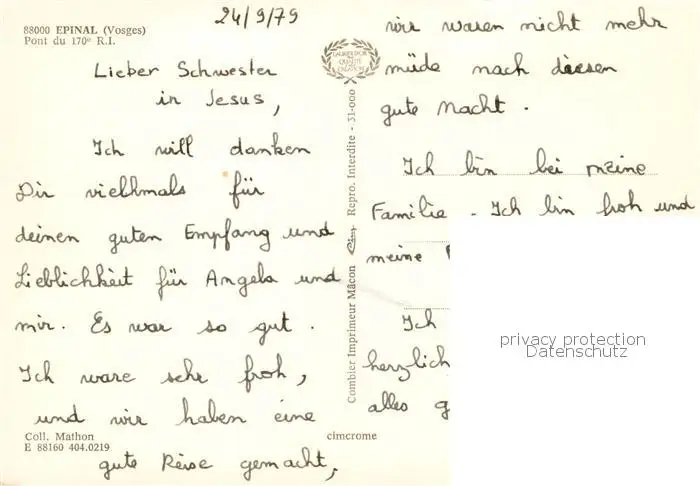 24/9/79
88000 EPINAL (Vosges)
Pont du 170e R.I.
Lieber Schwester
in Jesus,
Ich will danken
Dir viellhmals für
deinen guten Empfang und
Lieblichkeit für Angela und
mir. Es war so gut.
Ich ware sehr froh,
und wir haben eine
gute Reise gemacht,
Coll. Mathon
E 88160 404.0219
cimcrome
Combier Imprimeur Mâcon Cim Repro. Interdite - 31-000
wir waren nicht mehr
müde nach diesen
gute Nacht.
Ich bin bei meine
Familie - Ich bin froh und
meine
Ich
herzlich
alles g
privacy protection
Datenschutz